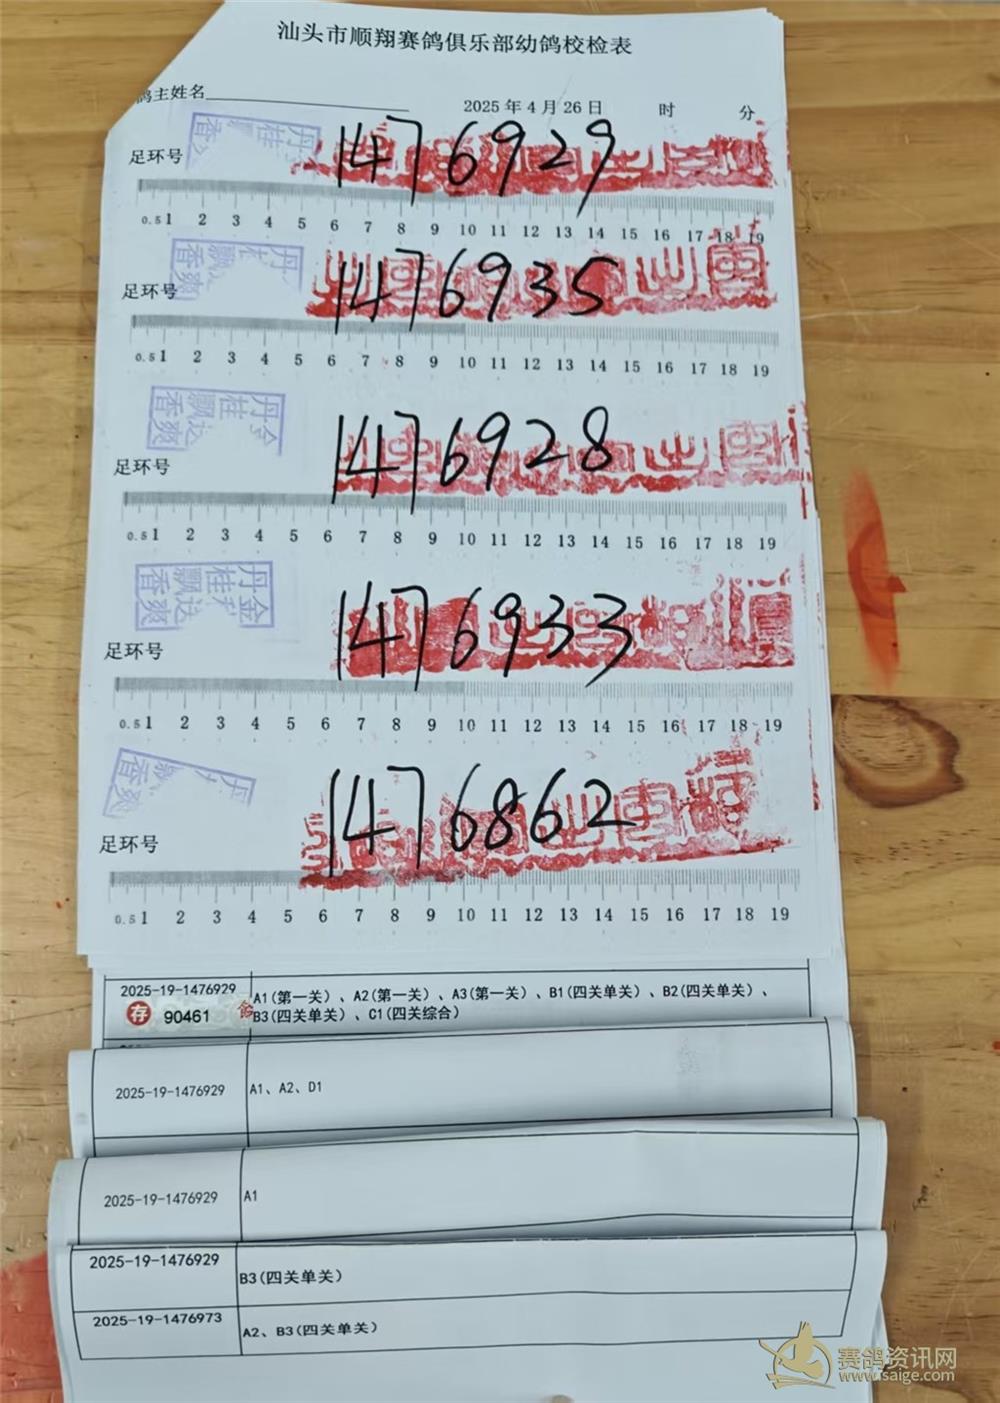 汕头市顺翔赛鸽俱乐部幼鸽校检表
鸽主姓名
2025 年 4 月 26 日 时 分
丹桂
香
足环号 1476929
0.5 1 2 3 4 5 6 7 8 9 10 11 12 13 14 15 16 17 18 19
丹桂飘
香爽
足环号 1476935
0.5 1 2 3 4 5 6 7 8 9 10 11 12 13 14 15 16 17 18 19
金
丹桂飘达
香爽
足环号 1476928
0.5 1 2 3 4 5 6 7 8 9 10 11 12 13 14 15 16 17 18 19
金
丹桂飘达
香爽
足环号 1476933
0.5 1 2 3 4 5 6 7 8 9 10 11 12 13 14 15 16 17 18 19
丹
香爽
足环号 1476862
0.5 1 2 3 4 5 6 7 8 9 10 11 12 13 14 15 16 17 18 19
2025-19-1476929 A1(第一关)、A2(第一关)、A3(第一关)、B1(四关单关)、B2(四关单关)、
存 90461 鸽 B3(四关单关)、C1(四关综合)
2025-19-1476929 A1、A2、D1
2025-19-1476929 A1
2025-19-1476929 B3(四关单关)
2025-19-1476973 A2、B3(四关单关)
赛鸽资讯网
www.saige.com